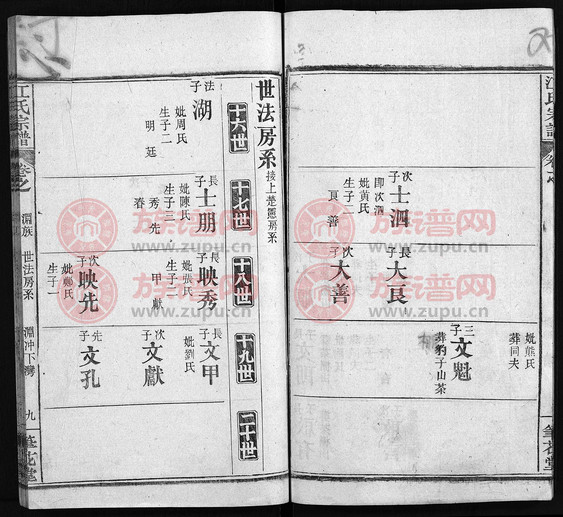 江氏宗譜
卷之
筆花堂
次子
士泗
即次泗
妣黃氏
生子二
良 善
長子
大良
次子
大善
妣熊氏
葬同夫
三子
文魁
葬豹子山茶
世法房系
接上楚璽房系
十六世
十七世
十八世
十九世
二十世
法子
湖
妣周氏
生子二
明 廷
長子
士朋
妣陳氏
生子三
秀 先
春
長子
映秀
妣張氏
生子二
甲 獻
次子
映先
妣鄭氏
生子一
長子
文甲
妣劉氏
次子
文獻
先子
文孔
江氏宗譜
卷之
世法房系
淵冲下灣
九
筆花堂
族谱网
www.zupu.cn
族谱网
www.zupu.cn
族谱网
www.zupu.cn
族谱网
www.zupu.cn